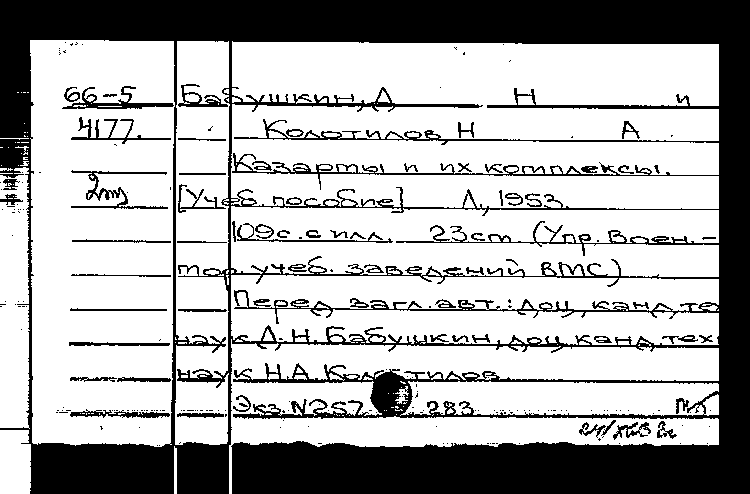 66-5 Бабушкин, Д Н и
4177. Колотилов, Н А
Казарты и их комплексы.
2т [Учеб. пособие] Л., 1953.
109с. с илл. 23cm (Упр. Воен.-
мор. учеб. заведений ВМС)
Перед загл. авт.: доц, канд, те
наук Д. Н. Бабушкин, доц канд. тех
наук Н.А. Колотилов
Экз. N257 283